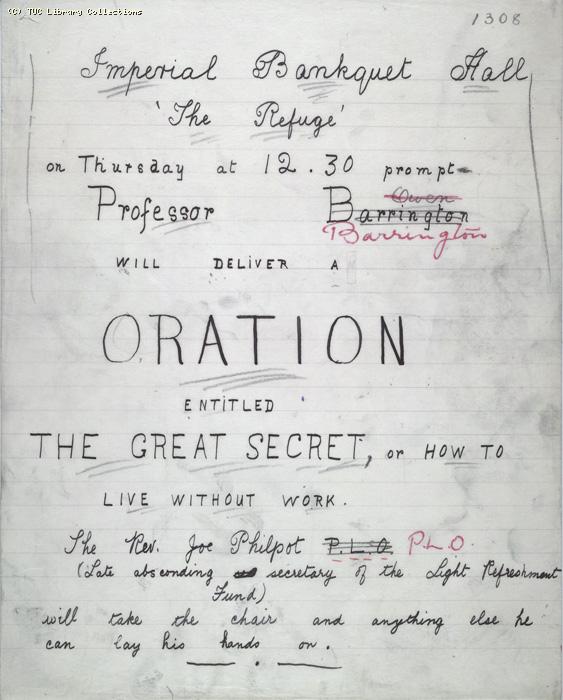 (C) TUC Library Collections
1308
Imperial Bankquet Hall
'The Refuge'
on Thursday at 12.30 prompt
Owen
Professor Barrington
Barrington
WILL DELIVER A
ORATION
ENTITLED
THE GREAT SECRET, or HOW TO
LIVE WITHOUT WORK.
The Rev. Joe Philpot P.L.O. P.L.O.
(Late absconding secretary of the Light Refreshment
Fund)
will take the chair and anything else he
can lay his hands on.